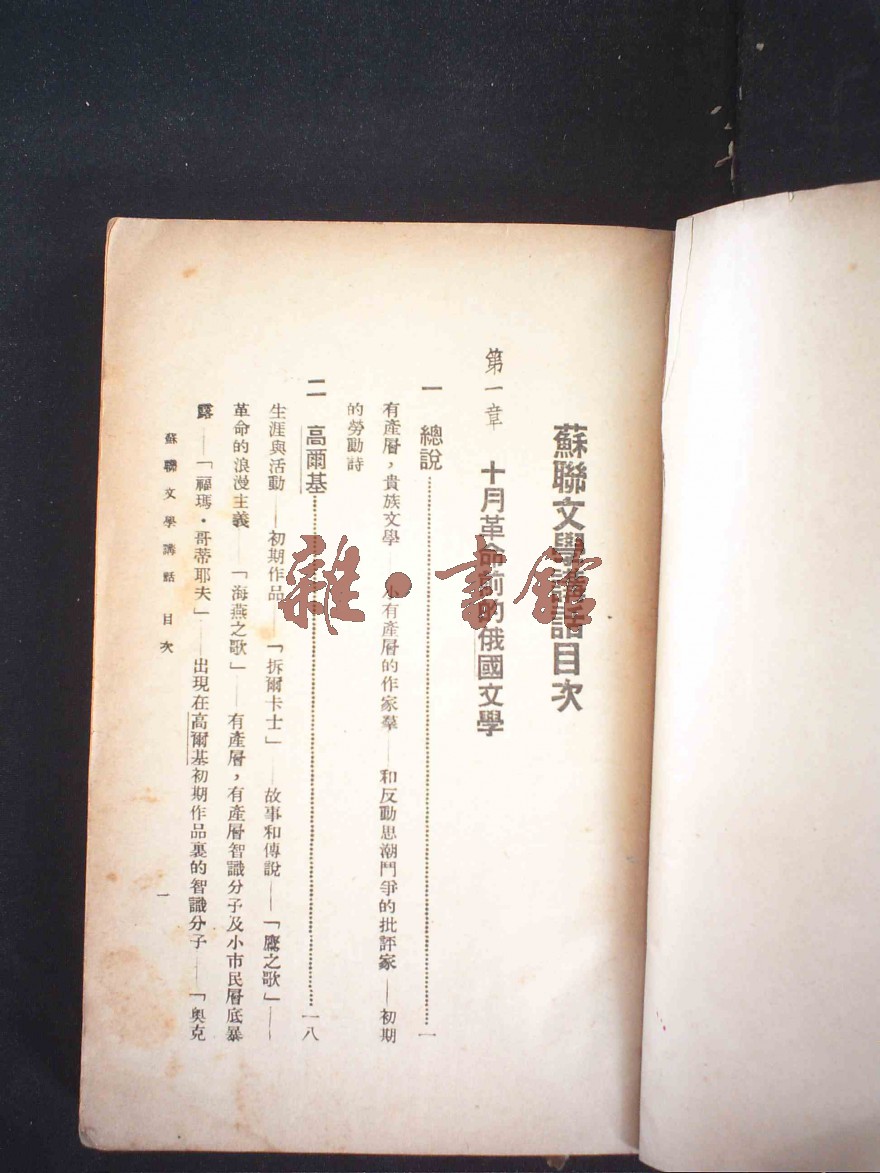 蘇聯文學講話目次
第一章 十月革命前的俄國文學
一 總說……一
有產層，貴族文學——小有產層的作家羣——和反動思潮鬥爭的批評家——初期
的勞動詩
二 高爾基……一八
生涯與活動——初期作品——「拆爾卡士」——故事和傳說——「鷹之歌」——
革命的浪漫主義——「海燕之歌」——有產層，有產層智識分子及小市民層底暴
露——「福瑪·哥蒂耶夫」——出現在高爾基初期作品裏的智識分子——「奧克
蘇聯文學講話 目次
一
雜·書館